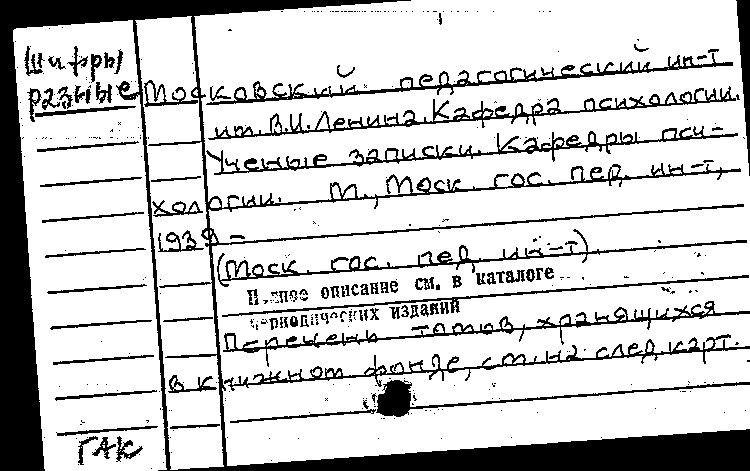 (Шифры
разные
Московский педагогический ин-т
им. В.И. Ленина. Кафедра психологии.
Ученые записки. Кафедры пси-
хологии. М., Моск. гос. пед. ин-т,
1939 -
(Моск. гос. пед. ин-т).
Полное описание см. в каталоге
периодических изданий
Перечень томов, хранящихся
в книжном фонде, см. на след. карт.
ГАК